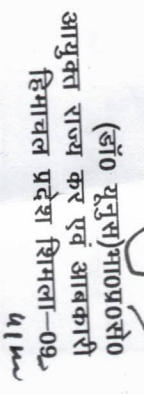 (डॉ० यूनुस)भा०प्र०से०
आयुक्त राज्य कर एवं आबकारी
हिमाचल प्रदेश शिमला–09